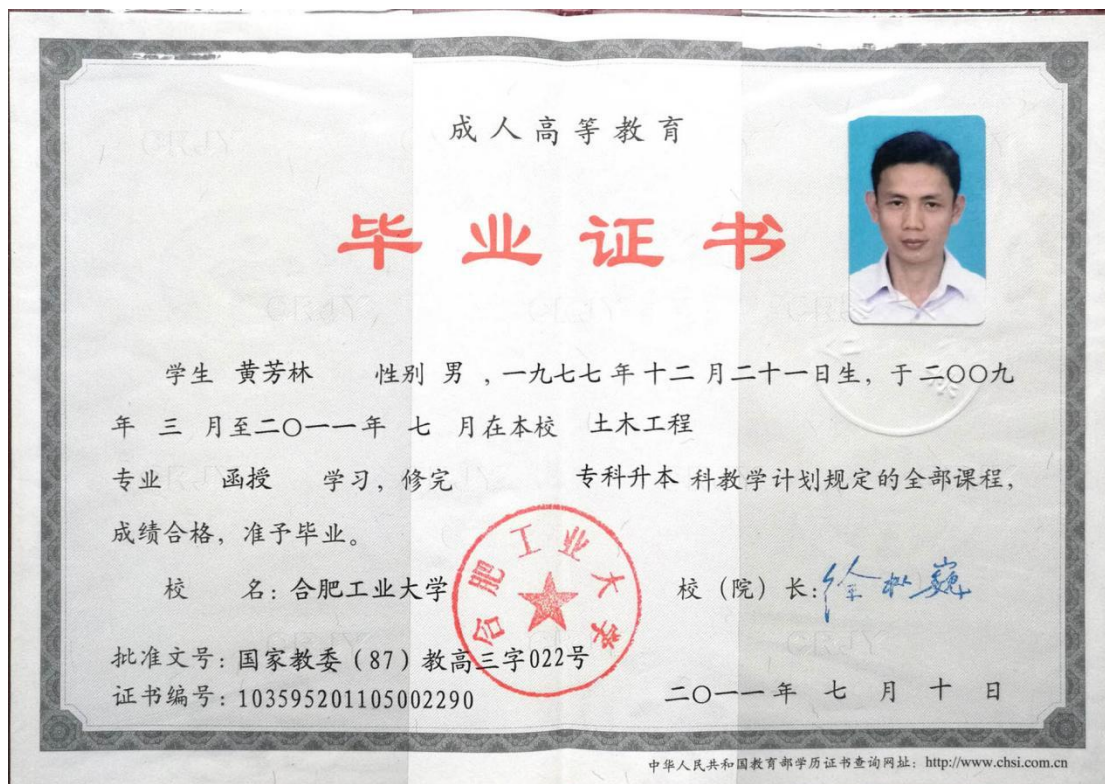 成人高等教育
毕业证书
学生 黄芳林 性别 男 ，一九七七年十二月二十一日生，于二〇〇九
年 三 月至二〇一一年 七 月在本校 土木工程
专业 函授 学习，修完 专科升本 科教学计划规定的全部课程，
成绩合格，准予毕业。
合肥工业大学
校 名：合肥工业大学 校（院）长：徐枞巍
批准文号：国家教委（87）教高三字022号
证书编号：103595201105002290 二〇一一年 七 月 十 日
中华人民共和国教育部学历证书查询网址：http://www.chsi.com.cn